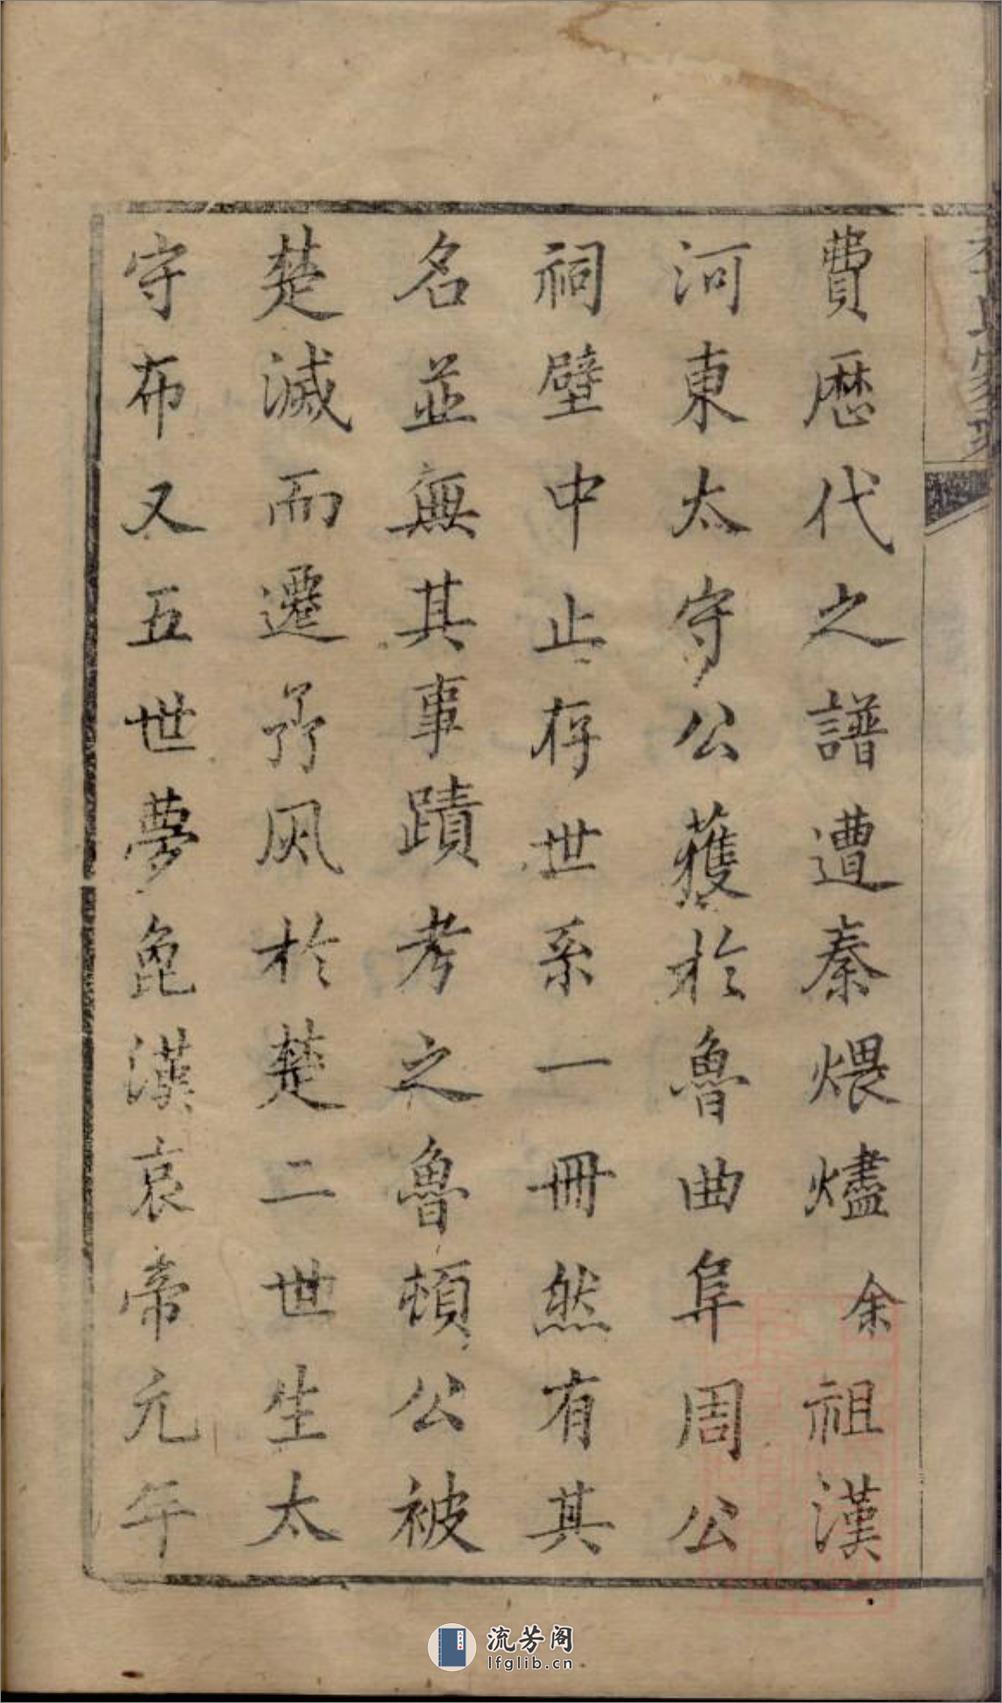 費歷代之譜遭秦煨燼余祖漢
河東太守公獲於魯曲阜周公
祠壁中止存世系一冊然有其
名並無其事蹟考之魯頓公被
楚滅而遷予夙於楚二世生太
守布又五世夢龟漢哀帝元年
流芳阁
lfglib.cn